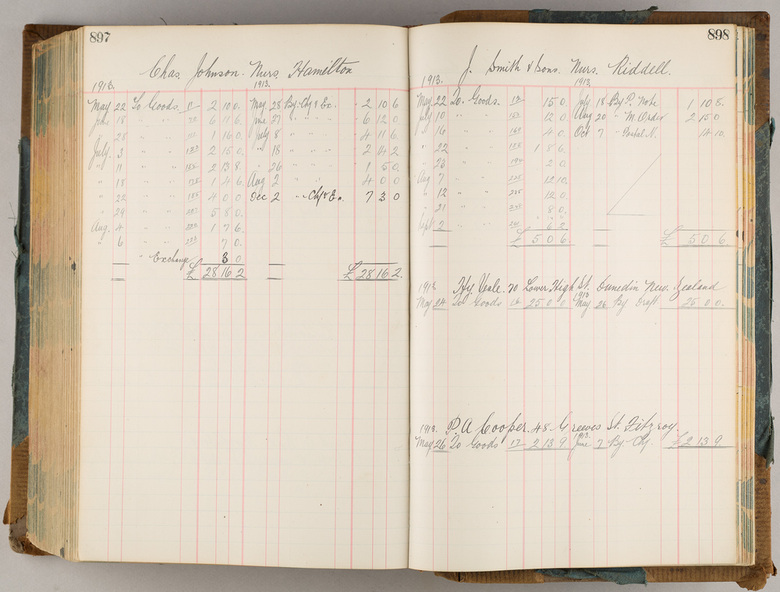 897
Chas Johnson. Nurs. Hamilton
1913. 1913.
May 22 To Goods 2 10 0. May 28 By Chq & Ex. 2 10 6
June 18 " " 6 11 6. June 27 " " " 6 12 0
" 28 " " 1 16 0 July 8 " " " 4 11 6
July 3 " " 2 15 0. " 18 " " " 2 14 2
" 11 " " 2 13 8. " 26 " " " 1 5 0.
" 18 " " 1 4 6. Aug 2 " " " 4 0 0
" 22 " " 4 0 0 Dec 2 " Chq & Ex. 7 3 0
" 29 " " 5 8 0.
Aug. 4 " " 1 7 6.
" 6 " " 7 0.
" Exchange 3 0
£ 28 16 2 £ 28 16 2.
898
J. Smith & Sons. Nurs. Riddell.
1913. 1913
May 22 To Goods. 15 0. July 18 By P. Note 1 10 8.
July 10 " " 12 0. Aug 20 " M. Order 2 15 0
" 16 " " 4 0. Oct 7 " Postal N. 14 10.
" 22 " " 1 8 6.
" 26 " " 2 0.
Aug 7 " " 12 10.
" 12 " " 12 0.
" 21 " " 8 0.
Sept 2 " " 6 2
£ 5 0 6 £ 5 0 6
1913 Hy Veale 20 Lower High St. Dunedin New Zealand
1913
May 24 To Goods 25 0 0 May 26 By Draft 25 0 0.
1913. P. A Cooper. 48 Greeves St. Fitzroy.
1913.
May 26 To Goods 17 2 13 9 June 3 By Chq £ 2 13 9